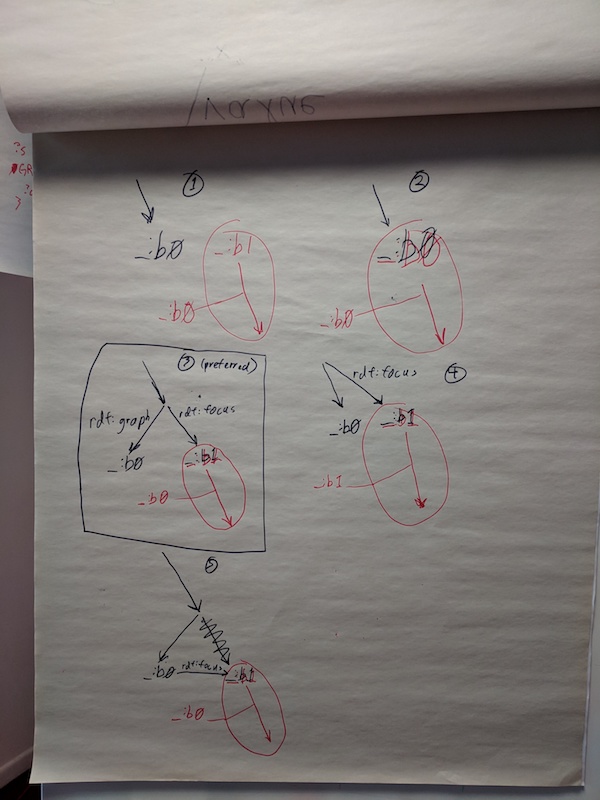 ?s
GR
}
①
②
_:b0
_:b1
_:b0
_:b0
_:b0
③ (preferred)
rdf:graph
rdf:focus
_:b0
_:b1
_:b0
rdf:focus
④
_:b0
_:b1
_:b1
⑤
_:b0
rdf:focus
_:b1
_:b0